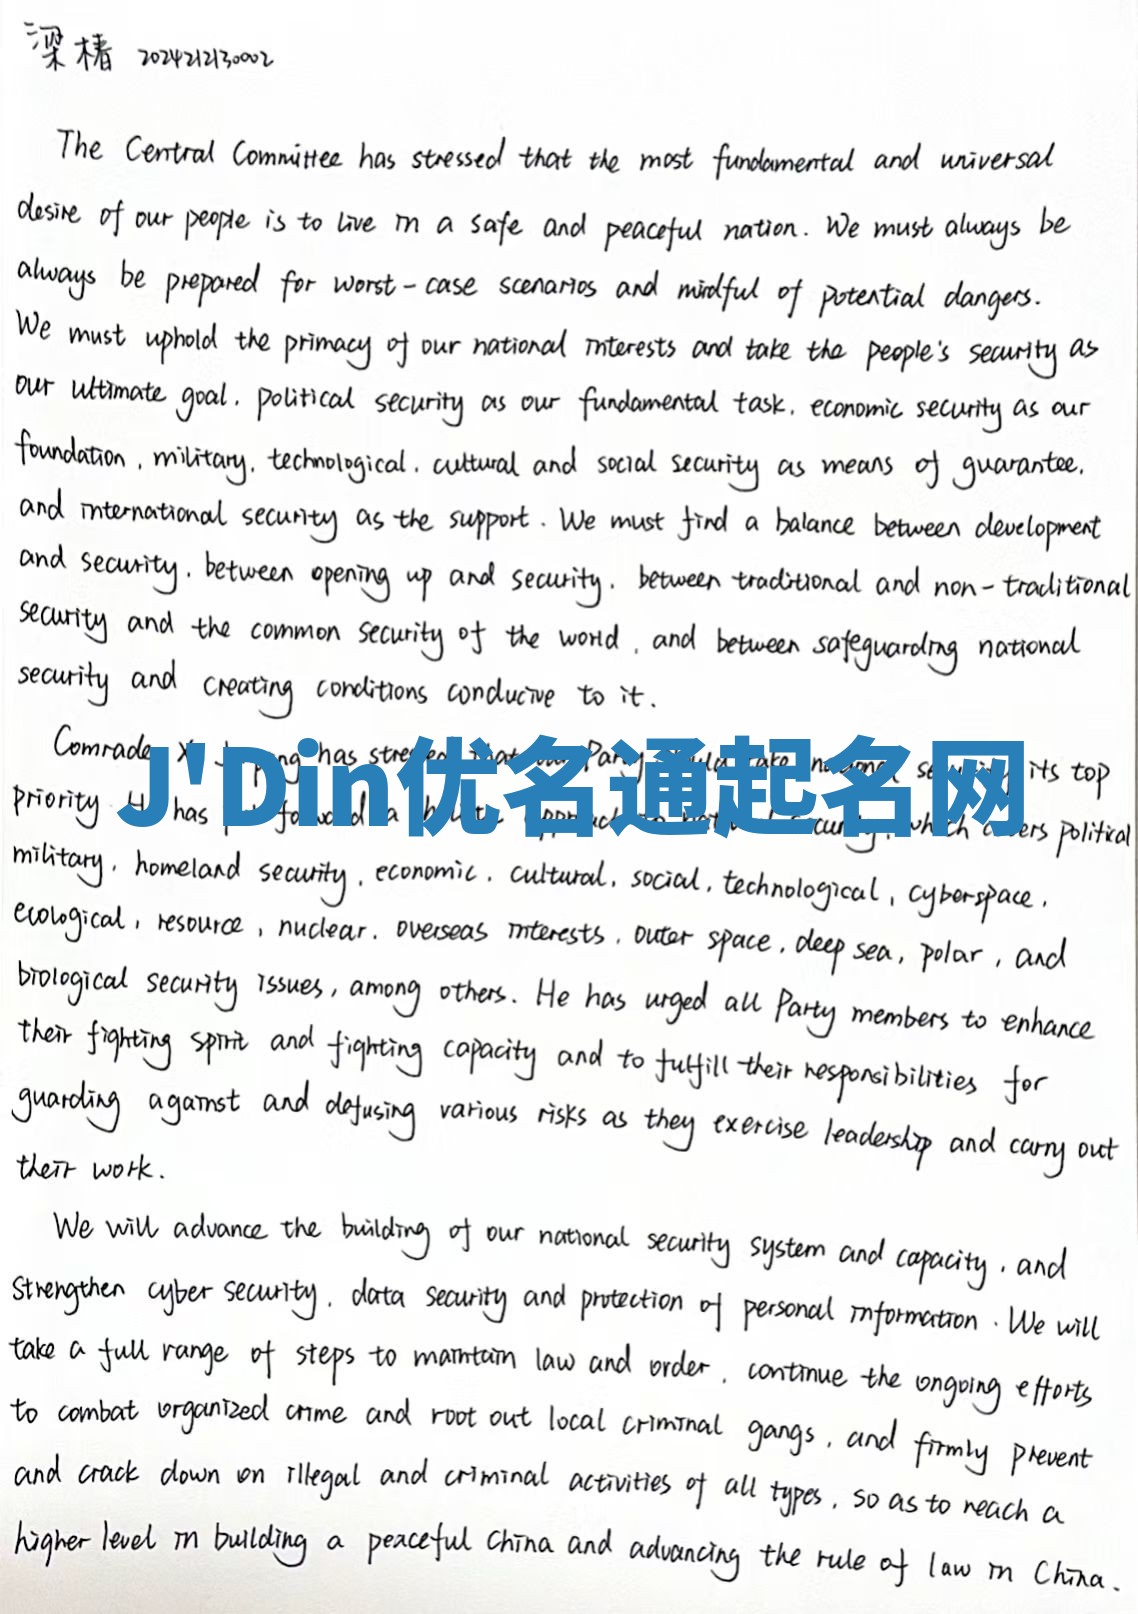 梁椿 2024212130002
The Central Committee has stressed that the most fundamental and universal
desire of our people is to live in a safe and peaceful nation. We must always be
always be prepared for worst-case scenarios and mindful of potential dangers.
We must uphold the primacy of our national interests and take the people's security as
our ultimate goal, political security as our fundamental task, economic security as our
foundation, military, technological, cultural and social security as means of guarantee,
and international security as the support. We must find a balance between development
and security, between opening up and security, between traditional and non-traditional
security and the common security of the world, and between safeguarding national
security and creating conditions conducive to it.
Comrade has that Party its top
J'Din优名通起名网
priority has a which covers political
military, homeland security, economic, cultural, social, technological, cyberspace,
ecological, resource, nuclear, overseas interests, outer space, deep sea, polar, and
biological security issues, among others. He has urged all Party members to enhance
their fighting spirit and fighting capacity and to fulfill their responsibilities for
guarding against and defusing various risks as they exercise leadership and carry out
their work.
We will advance the building of our national security system and capacity, and
strengthen cyber security, data security and protection of personal information. We will
take a full range of steps to maintain law and order, continue the ongoing efforts
to combat organized crime and root out local criminal gangs, and firmly prevent
and crack down on illegal and criminal activities of all types, so as to reach a
higher level in building a peaceful China and advancing the rule of law in China.